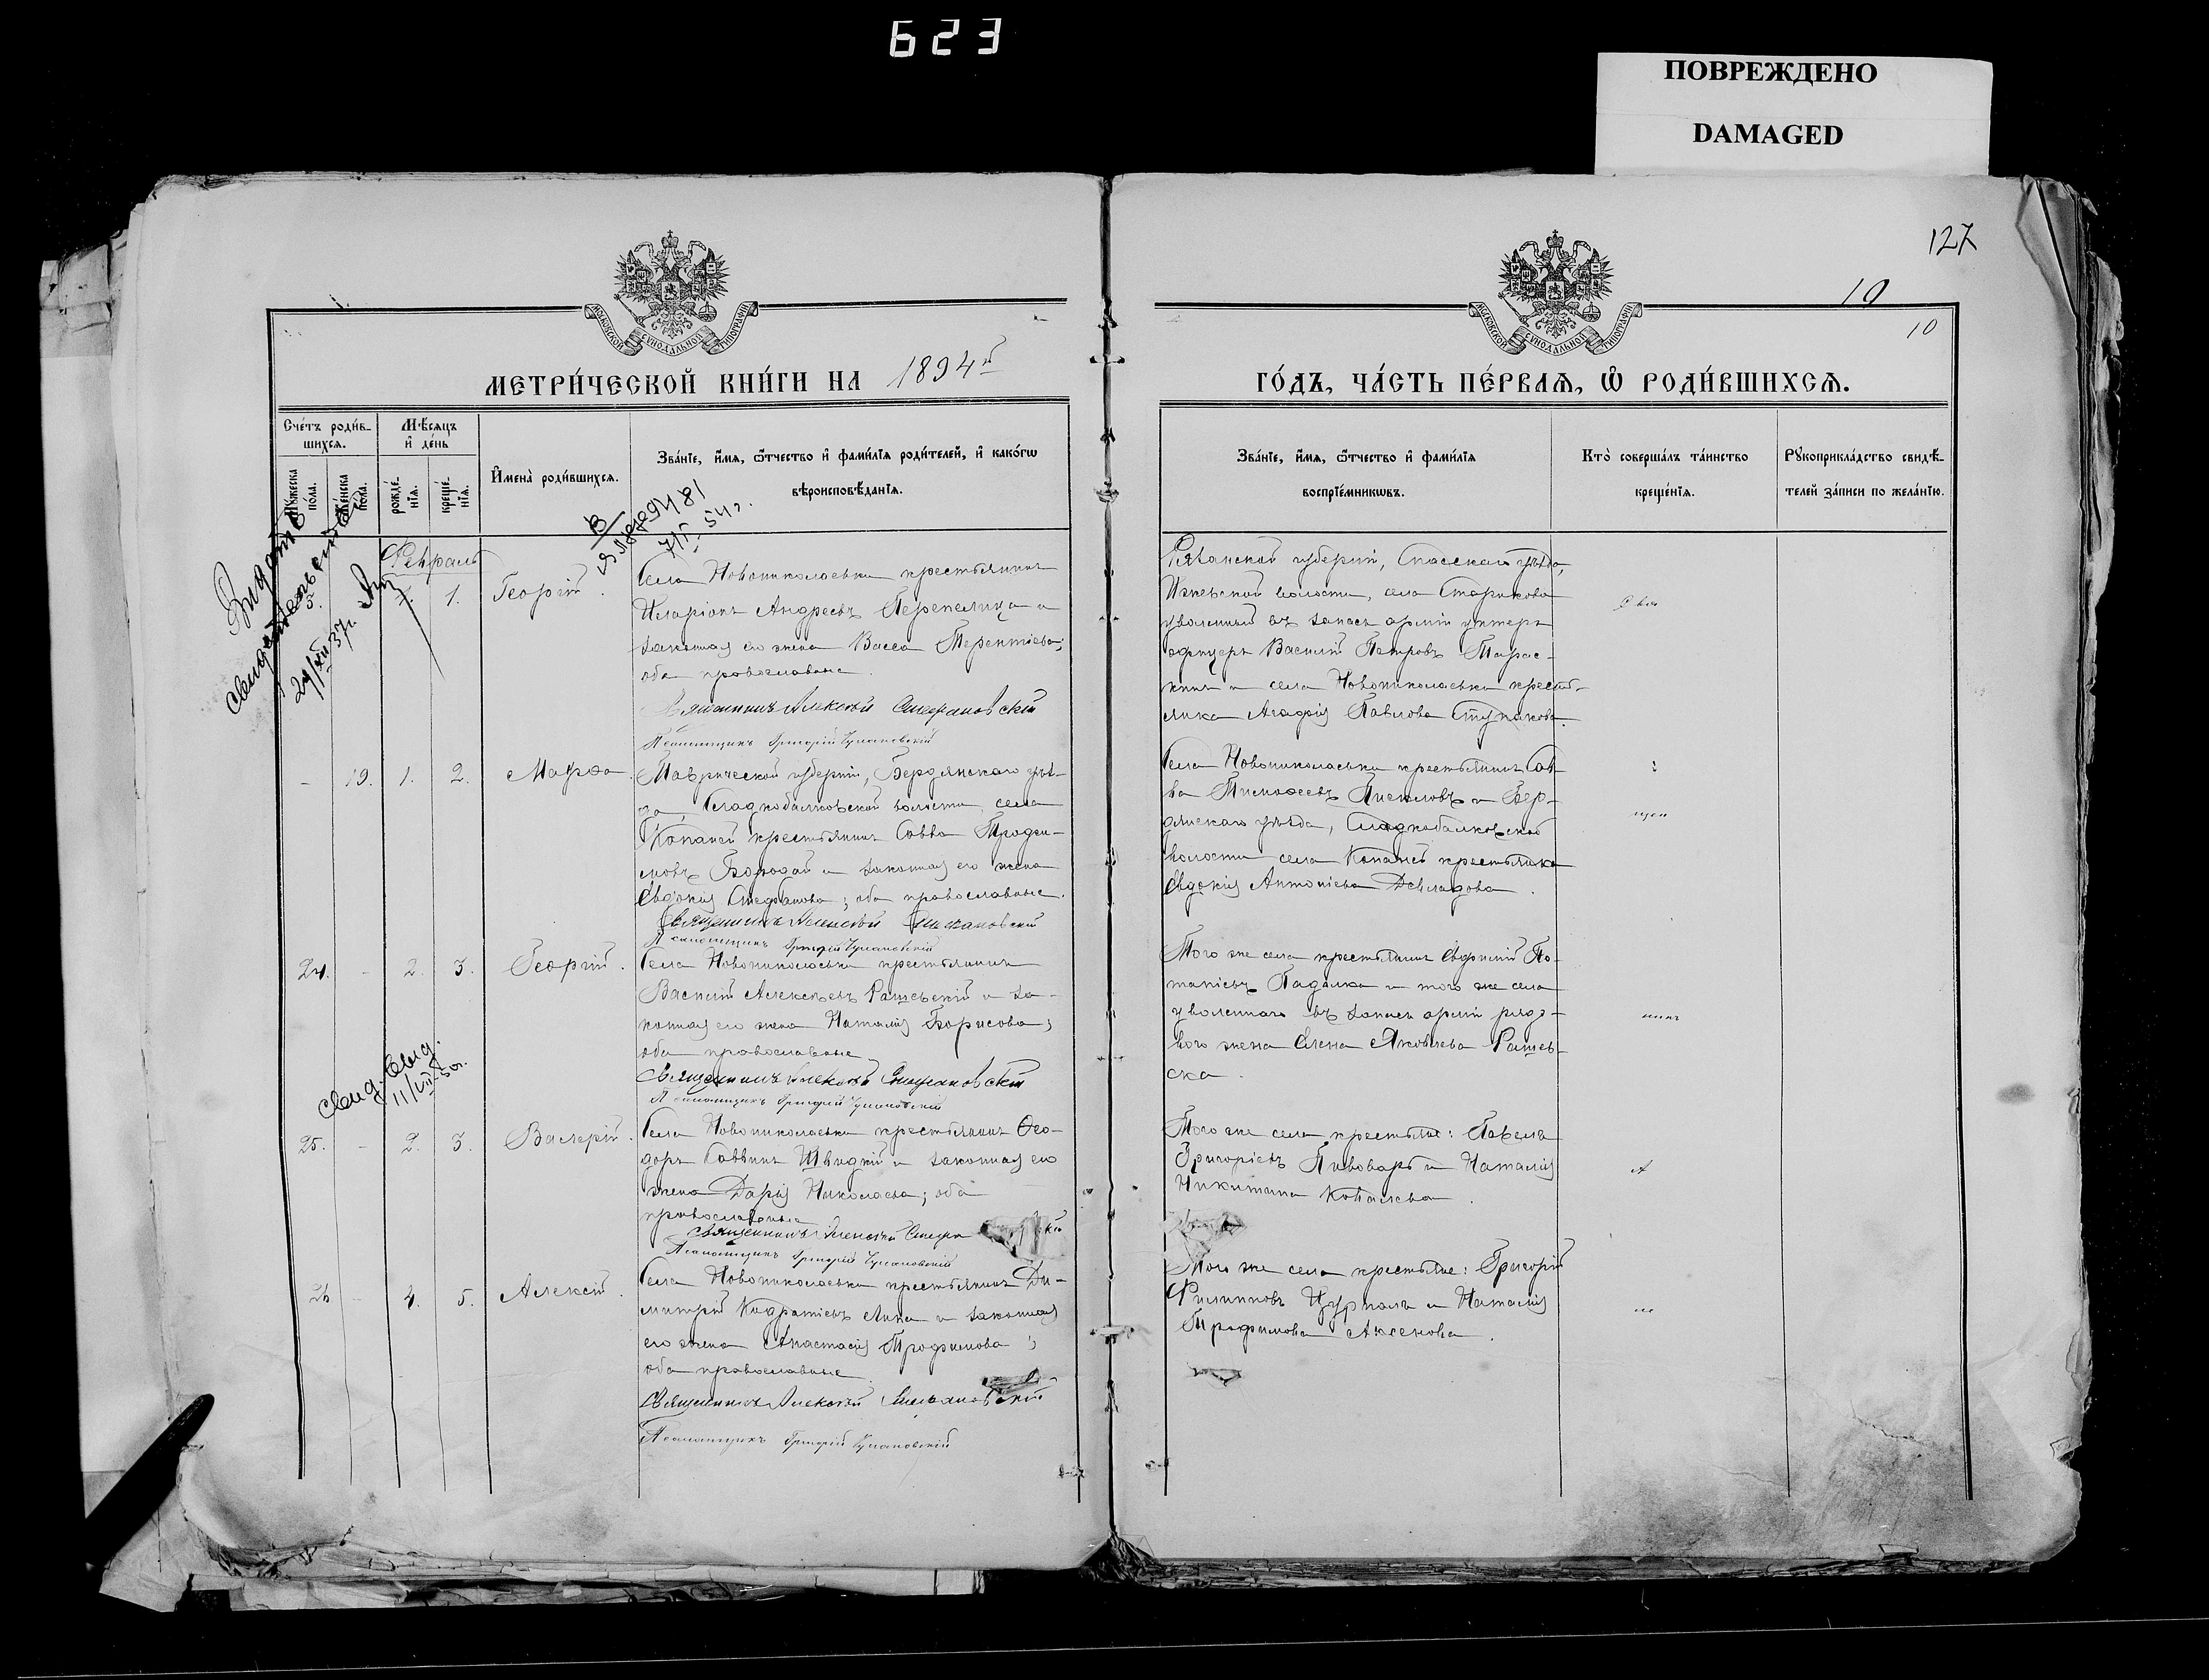 623
ПОВРЕЖДЕНО
DAMAGED
127
10
10
МОСКОВСКОЙ СѴНОДАЛЬНОЙ ТИПОГРАФІИ
МОСКОВСКОЙ СѴНОДАЛЬНОЙ ТИПОГРАФІИ
МЕТРИ́ЧЕСКОЙ КНИ́ГИ НА 1894й
ГО́ДЪ, ЧА́СТЬ ПЕ́РВАѦ, Ѿ РОДИ́ВШИХСѦ.
Сче́тъ роди́в-
шихсѧ.
Мѣ́сѧцъ
и҆ де́нь
Мꙋ́жеска
по́ла.
Же́нска
по́ла.
рожде́-
нїѧ.
креще́-
нїѧ.
И҆мена̀ роди́вшихсѧ.
Зва́нїе, и҆́мѧ, ѻ҆́тчество и҆ фами́лїѧ роди́телей, и҆ како́гѡ
вѣроисповѣ́данїѧ.
Зва́нїе, и҆́мѧ, ѻ҆́тчество и҆ фами́лїѧ
воспрїе́мникѡвъ.
Кто̀ соверша́лъ та́инство
креще́нїѧ.
Рꙋкоприкла́дство свидѣ́-
телей за́писи по жела́нїю.
Видано
24/XII 37г.
54г.
Февраль
1.
Георгій.
Села Новониколаевки крестьянинъ
Иларіонъ Андреевъ Перепелица и
законная его жена Васса Терентіева;
оба православные.
Священникъ Алексѣй Стефановскій
Псаломщикъ Григорій
Рязанской губерніи, Спасскаго уѣзда,
Ижевской волости, села Старикова
уволенный въ запасъ арміи унтеръ
офицеръ Василій Петровъ Марас-
кинъ и села Новониколаевки крестья-
янка Агафія Павлова Ступакова.
- 19. 1. 2. Марфа.
Таврической губерніи, Бердянскаго уѣз-
да, Сладкобалковской волости, села
Копаней крестьянинъ Савва Трофи-
мовъ Бородай и законная его жена
Евдокія Стефанова; оба православные.
Священникъ Алексѣй Стефановскій
Псаломщикъ Григорій
Села Новониколаевки крестьянинъ Сав-
ва Тимофеевъ и Бер-
дянскаго уѣзда, Сладкобалковской
волости села Копаней крестьянка
Евдокія Антоніева Девладова.
24. - 2. 3. Георгій.
Села Новониколаевки крестьянинъ
Василій Алексѣевъ Рашевскій и за-
конная его жена Наталія Борисова;
оба православные
Священникъ Алексѣй Стефановскій
Псаломщикъ Григорій
Того же села крестьянинъ Евфимій По-
тапіевъ Гадалка и того же села
уволеннаго въ запасъ арміи рядо-
вого жена Елена Яковлева Рашев-
ска.
11/VII 50г.
25. - 2. 3. Валерій.
Села Новониколаевки крестьянинъ Ѳео-
доръ Саввинъ Швидкій и законная его
жена Дарія Николаева; оба
православные
Священникъ Алексѣй Стефа кій
Псаломщикъ Григорій
Того же села крестьяне: Павелъ
Григоріевъ Пивоваръ и Наталія
Никитина Ковалева.
26. - 4. 5. Алексій.
Села Новониколаевки крестьянинъ Ди-
митрій Кодратіевъ Лика и законная
его жена Анастасія Трофимова;
оба православные.
Священникъ Алексѣй Стефановскій
Псаломщикъ Григорій
Того же села крестьяне: Григорій
Филипповъ Цурпалъ и Наталія
Трофимова Аксенова.